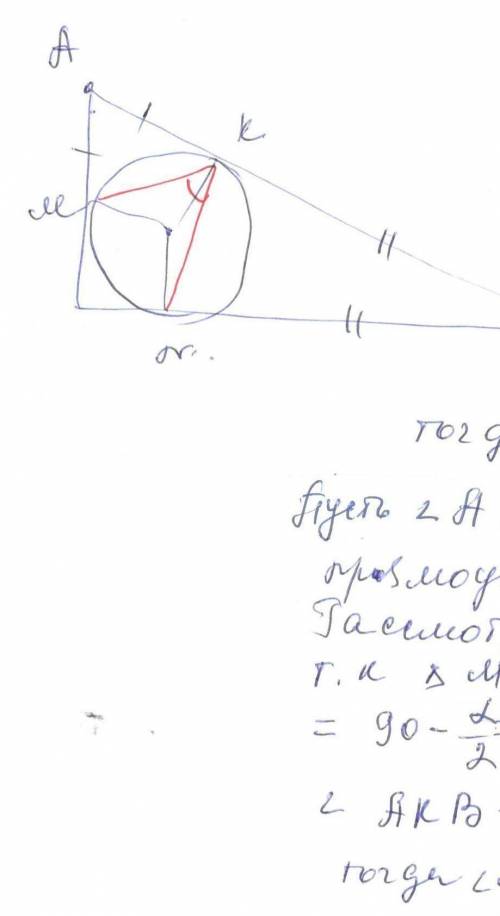 A
K
M
N.
тогд
Пусть ∠ A
прямоу
Рассмот
т. к △ М
= 90 - α/2
∠ AKB
тогда ∠